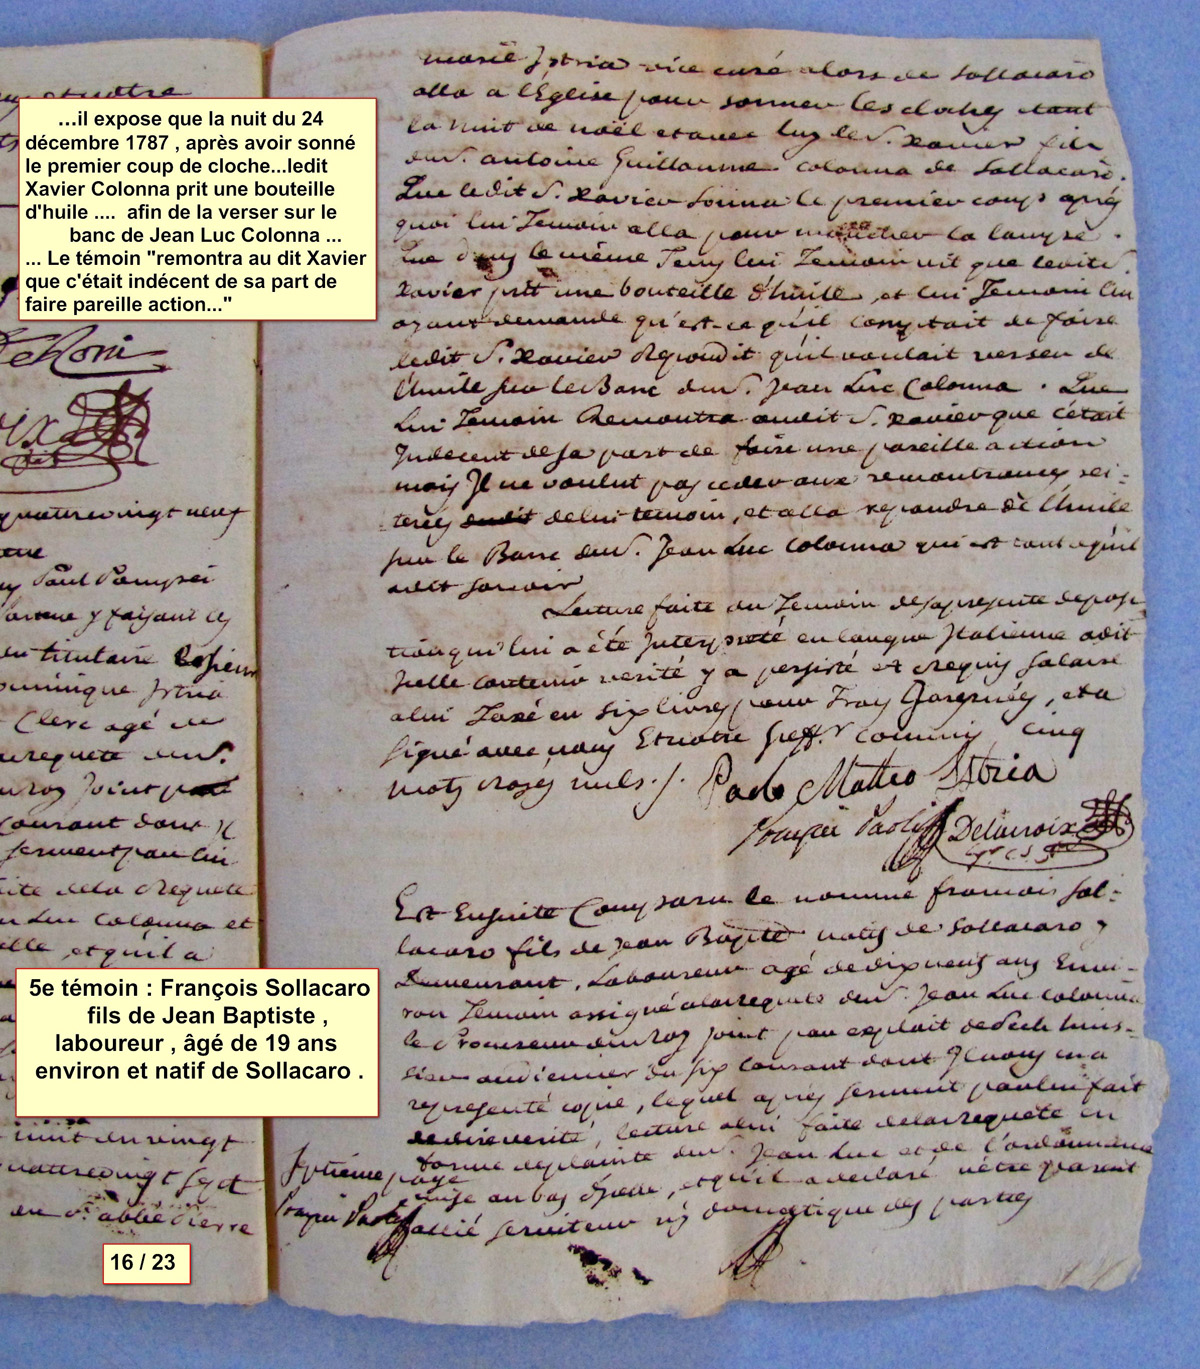 ...il expose que la nuit du 24
décembre 1787 , après avoir sonné
le premier coup de cloche...ledit
Xavier Colonna prit une bouteille
d'huile .... afin de la verser sur le
banc de Jean Luc Colonna ...
... Le témoin "remontra au dit Xavier
que c'était indécent de sa part de
faire pareille action..."
quatrevingt neuf
Paul Pompei
y faisant les
titulaire
Dominique Istria
Clerc agé de
requete du S.
Roy joint
Courant dont Il
serment par lui
faite de la Requete
Luc Colonna et
et qu'il a
5e témoin : François Sollacaro
fils de Jean Baptiste ,
laboureur , âgé de 19 ans
environ et natif de Sollacaro .
nuit du vingt
quatrevingt sept
du S. abbé Pierre
16 / 23
marie Istria vice curé alors de Sollacaro
alla a l'Église pour sonner les cloches etant
la nuit de noël et avec luy le S. Xavier fils
du S. antoine Guillaume colonna de Sollacaro.
Que ledit S. Xavier sonna le premier coup après
quoi lui Temoin alla pour moucher la lampe.
Que dans le même Tems lui Temoin vit que ledit S.
Xavier prit une bouteille d'huille, et lui Temoin lui
ayant demandé qu'est-ce qu'il comptait de faire
ledit S. Xavier Repondit qu'il voulait verser de
l'huile sur le Banc du S. Jean Luc Colonna. Que
Lui Temoin Remontra audit S. Xavier que c'était
Indecent de sa part de faire une pareille action
mais Il ne voulut pas ceder aux remontrances rei-
terées dudit de lui temoin, et alla repandre de l'huile
sur le Banc du S. Jean Luc Colonna qui est tout ce qu'il
a dit savoir
Lecture faite au Temoin de sa presente deposi
tion qui lui a été Interpreté en langue Italienne a dit
Icelle contenir verité y a persisté et Requis salaire
a lui Taxé en six livres pour Trois journées, et a
signé avec nous Et notre Greff.r commis cinq
mots rayés nuls ./. Paolo Matteo Istria
Pompei Paoli Delacroix
Est Ensuite Comparu le nommé francois Sol-
lacaro fils de Jean Baptiste natif de Sollacaro y
Demeurant, Laboureur agé de dix neuf ans Envi-
ron Temoin assigné a la requete du S. Jean Luc Colonna
le Procureur du Roy joint par exploit de huis-
sier audiencier du six courant dont Il nous en a
representé copie, lequel après serment par lui fait
de dire verité, lecture a lui faite de la requete en
forme de plainte du S. Jean Luc et de l'ordonnance
mise au bas d'Icelle, et qu'il a declaré n'être parent
allié serviteur ni domestique des parties
Septième page
Pompei Paoli